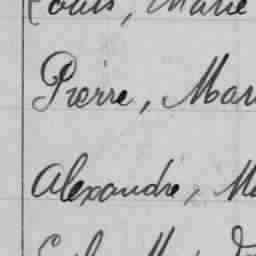 Louis, Marie
Pierre, Mar
Alexandre, Ma